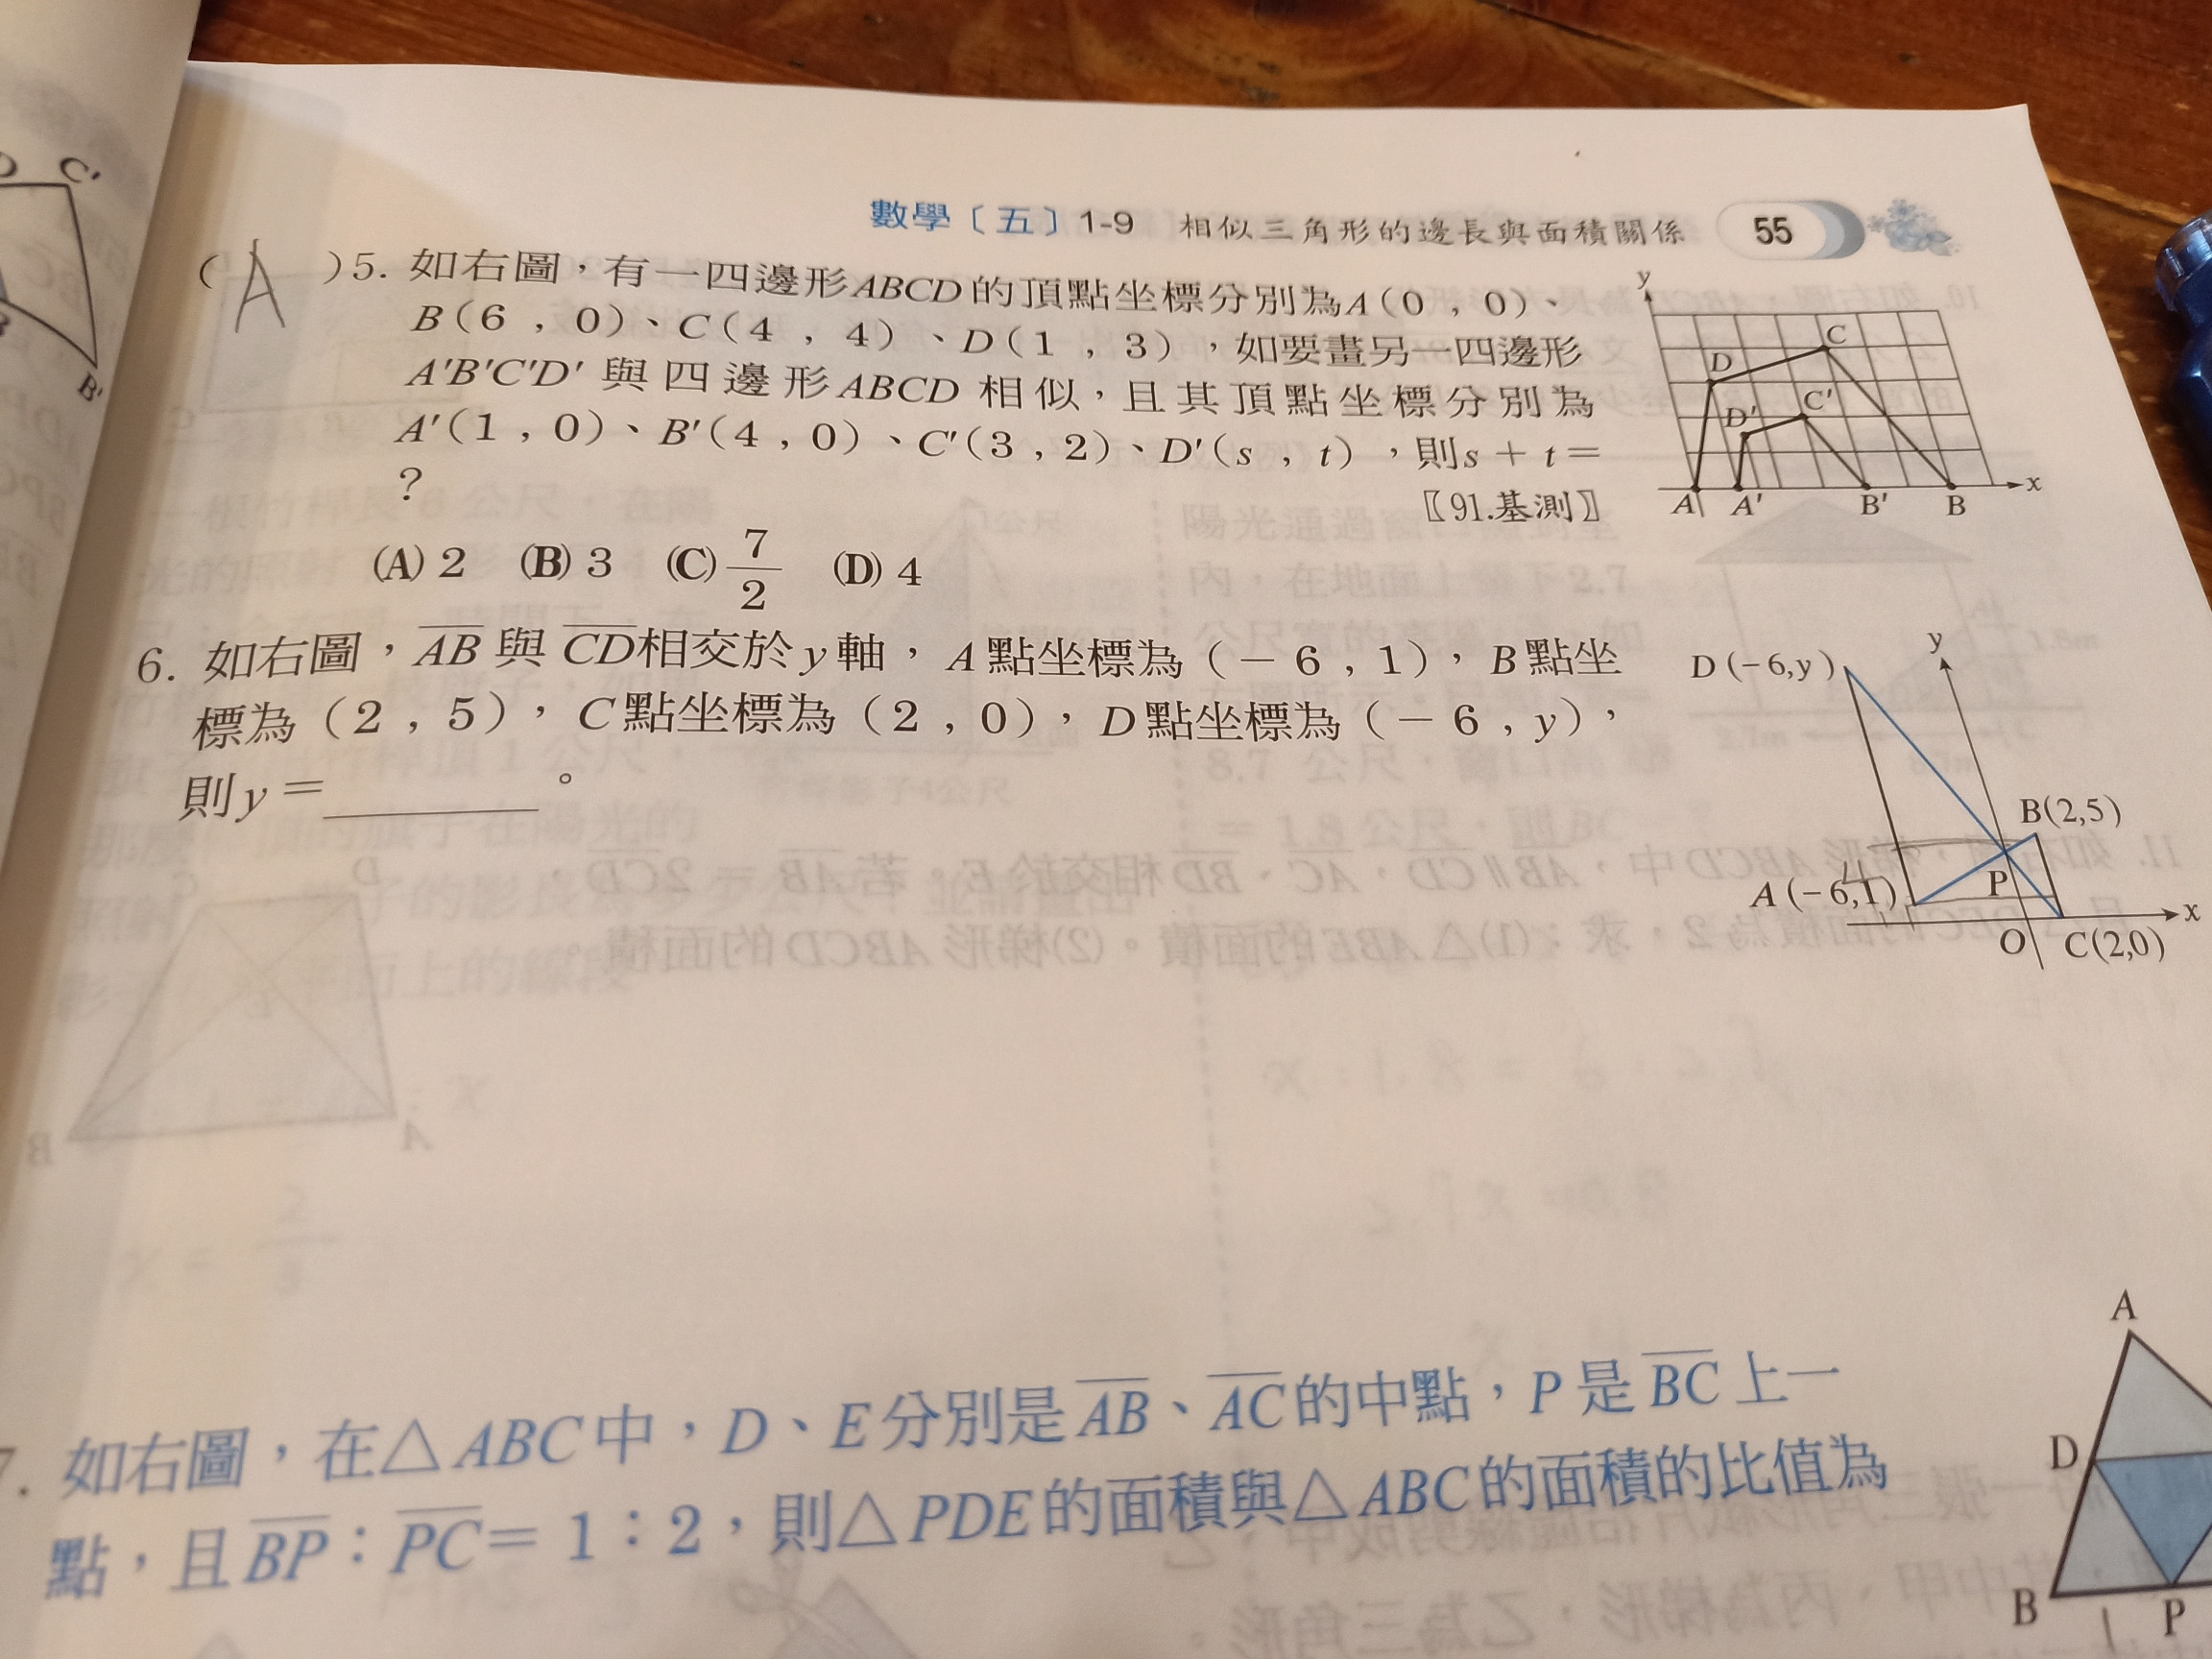 C'
B'
數學〔五〕1-9 相似三角形的邊長與面積關係 55
( A )5. 如右圖，有一四邊形ABCD的頂點坐標分別為A（0，0）、
B（6，0）、C（4，4）、D（1，3），如要畫另一四邊形
A'B'C'D' 與四邊形ABCD 相似，且其頂點坐標分別為
A'（1，0）、B'（4，0）、C'（3，2）、D'（s，t），則s＋t＝
？
〖91.基測〗
(A) 2 (B) 3 (C) 7/2 (D) 4
y
C
D
C'
D'
x
A A' B' B
6. 如右圖，AB與CD相交於y軸，A點坐標為（－6，1），B點坐
標為（2，5），C點坐標為（2，0），D點坐標為（－6，y），
則y＝＿＿＿＿。
y
D(−6,y)
B(2,5)
4
P
A(−6,1)
x
O C(2,0)
7. 如右圖，在△ABC中，D、E分別是AB、AC的中點，P是BC上一
點，且BP：PC＝1：2，則△PDE的面積與△ABC的面積的比值為
A
D
B P
1